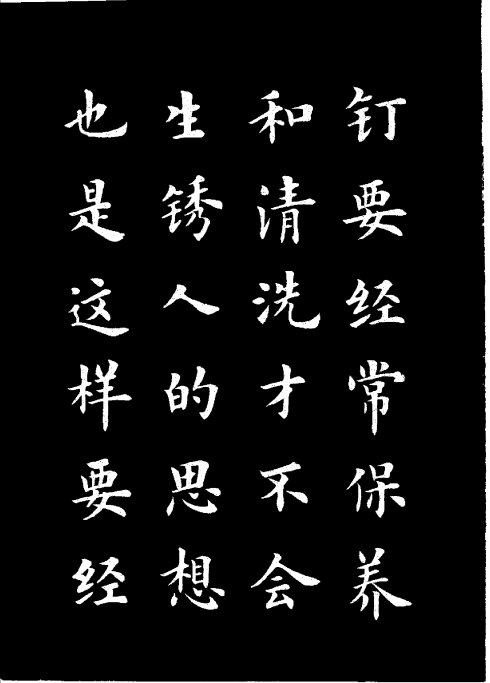 钉要经常保养
和清洗才不会
生锈人的思想
也是这样要经